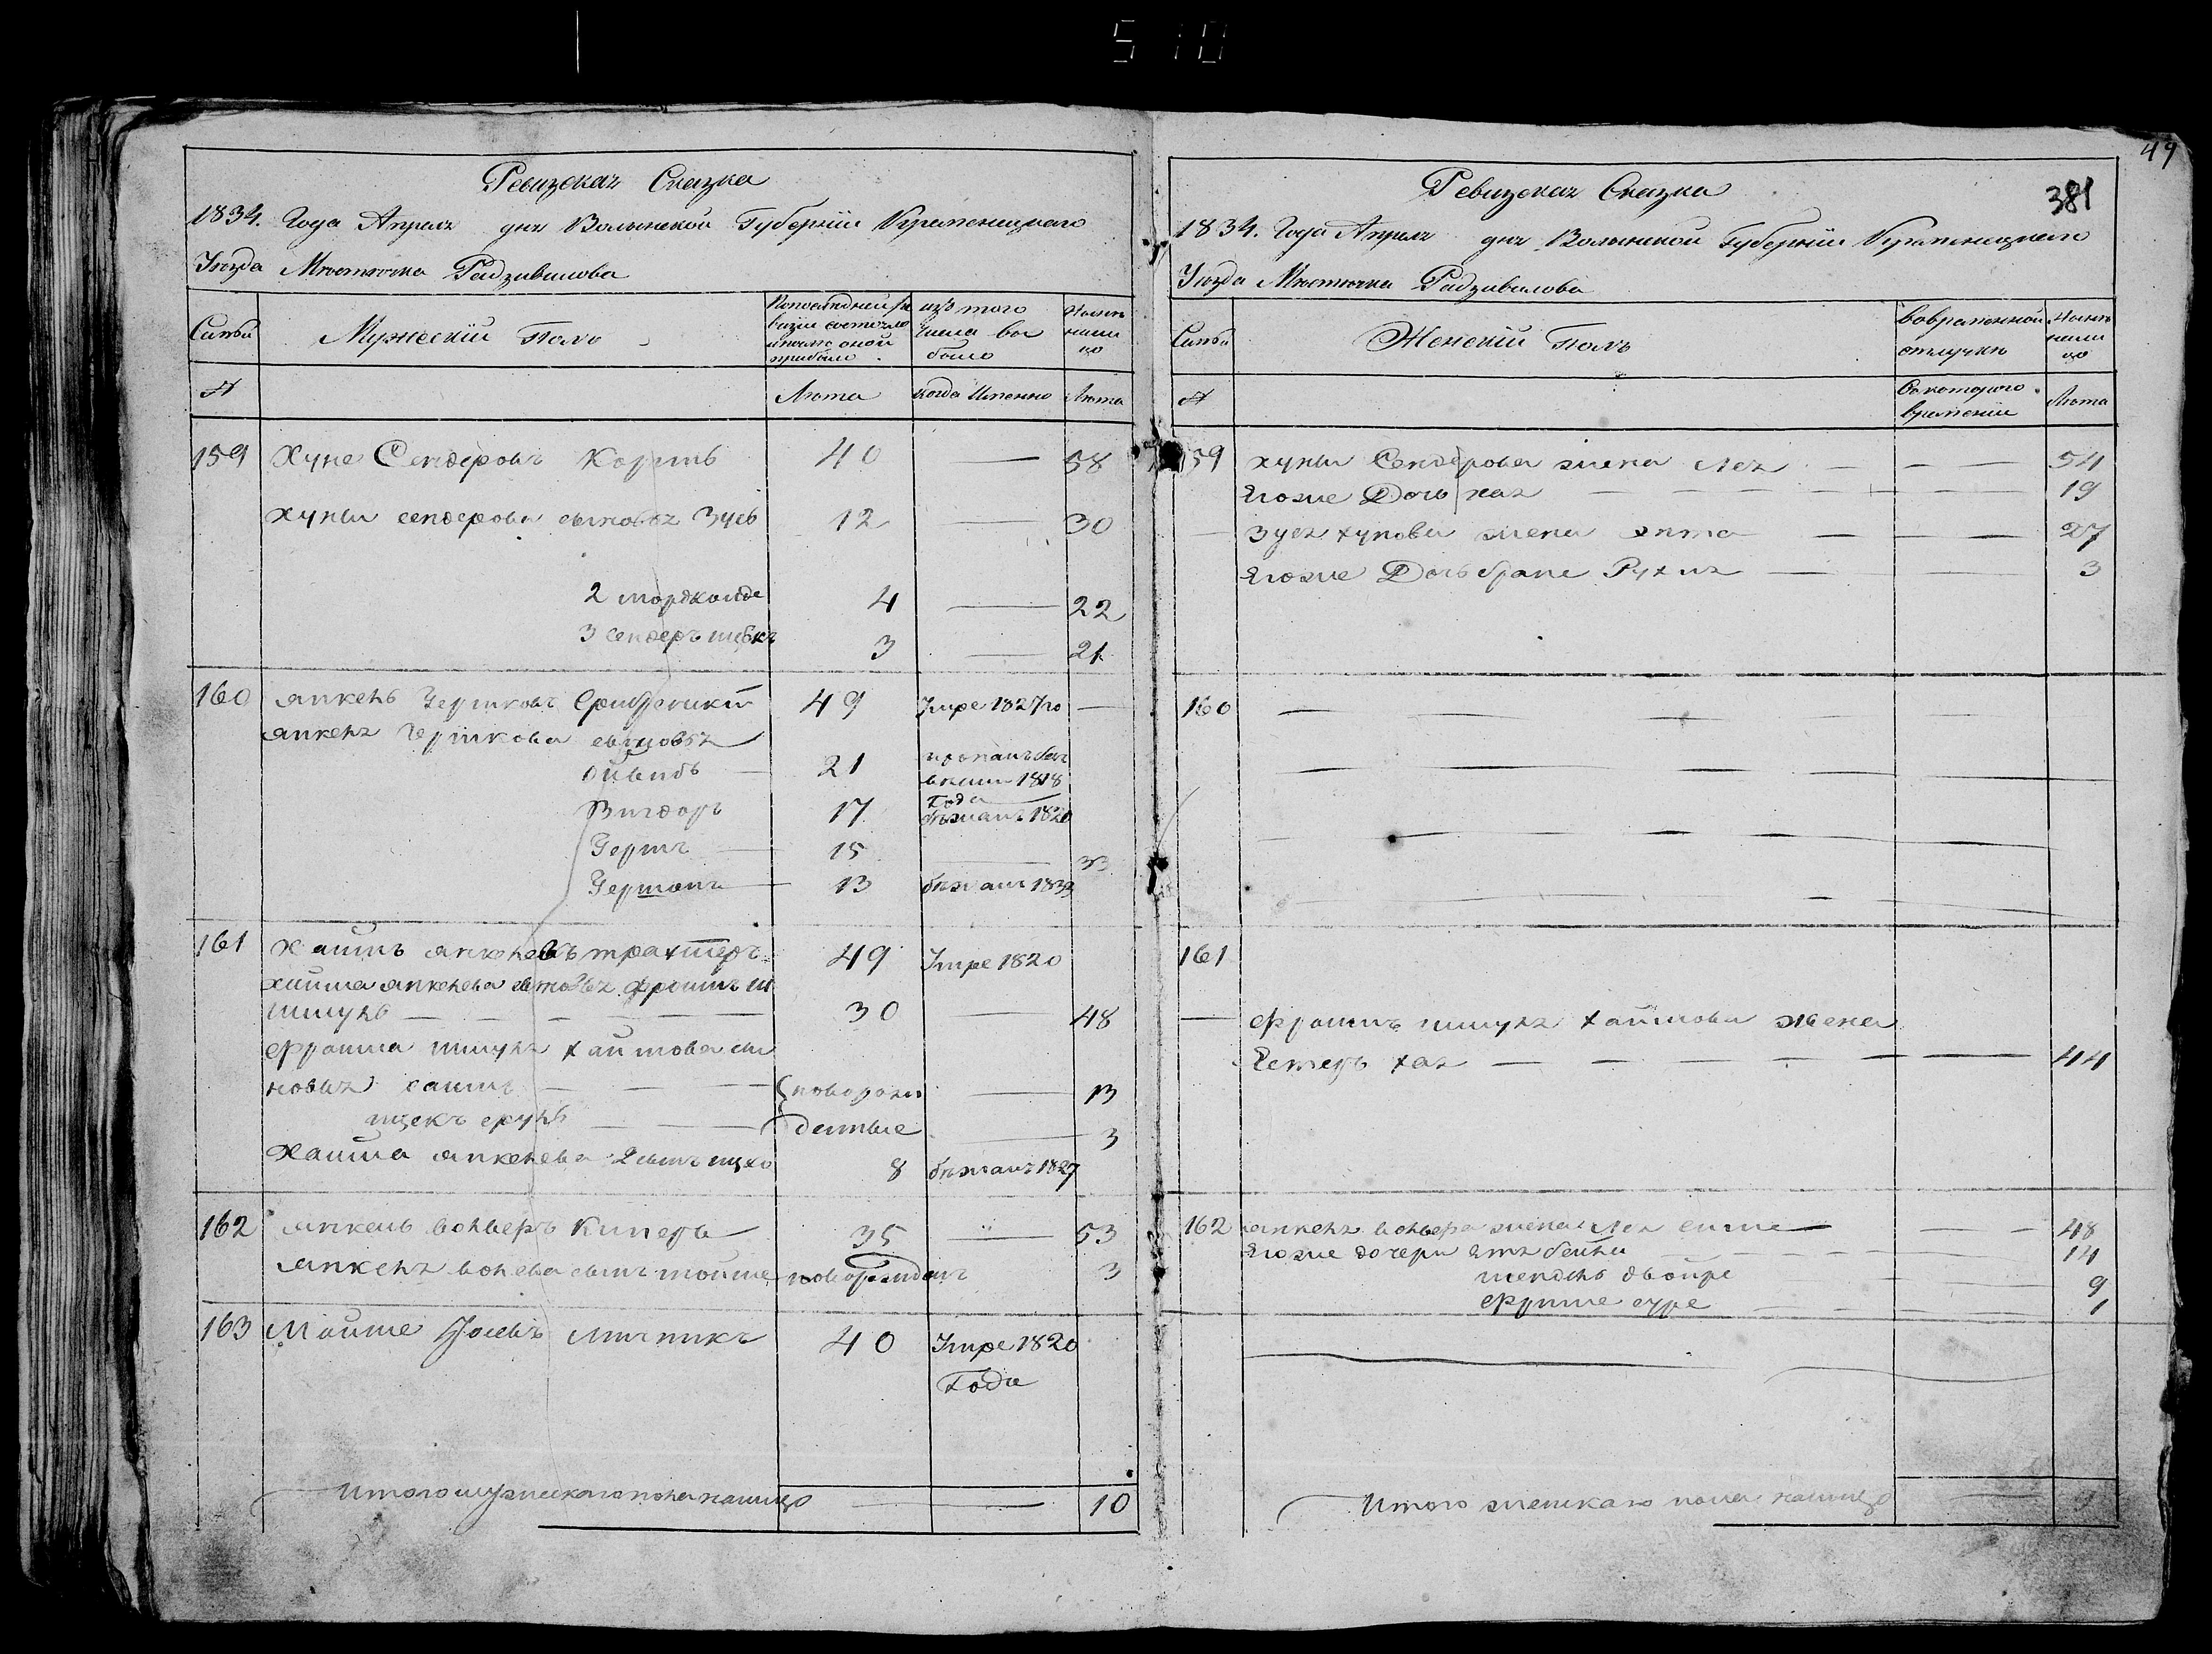 5 10
49
381
Ревизская Сказка
1834. Года Апреля дня Волынской Губернии Кременецкаго
Уезда Местечка Радзивилова
Семьи
Мужеский Полъ
По последней ревизии состояло и после оной прибыло
изъ того числа выбыло
Ныне налицо
№
Лета
когда Именно
Лета
159 Хуне Сендеровъ Корит 40 — 58
Хуны сендерова сыновья Зусь 12 — 30
2 мордко 4 — 22
3 сендеръ 3 — 21
160 Янкель Гершковъ 49 Умре 1827го —
Янкеля Гершкова сыновья
21 пропалъ безъ вести 1818 Года
Вигдоръ 17 бежалъ 1820
Гершъ 15 — 33
Гершонъ 13 бежалъ 1832
161 Хаимъ Янкелевъ трахтеръ 49 Умре 1820
Хаима Янкелева сыновья Фроимъ ш
шмуль — 30 — 48
Фроима шмуля Хаимова сы
новья хаимъ — новорож — 13
ицекъ сруль — денные — 3
Хаима Янкелева 2 сынъ ицхо 8 бежалъ 1827
162 Янкель волверъ Киперъ 35 — 53
Янкеля волева сынъ мойше новорожденъ 3
163 Мойше Иосевъ 40 Умре 1820
Года
Итого мужескаго пола налицо — 10
Ревизская Сказка
1834. Года Апреля дня Волынской Губернии Кременецкаго
Уезда Местечка Радзивилова
Семьи
Женский Полъ
Во временной отлучке
Ныне налицо
№
Съ котораго времени
Лета
159 хуны Сендерова жена лея — 54
Егоже Дочь хая — 19
Зуся хунова жена энта — 27
Егоже Дочь бране Рухля — 3
160
161
Фроимъ шмуля хаимова жена
Естеръ хая — 44
162 Янкеля волвера жена лея — 48
Егоже дочери бейла 14
шендель двойре 9
фруме суре 1
Итого женскаго пола налицо